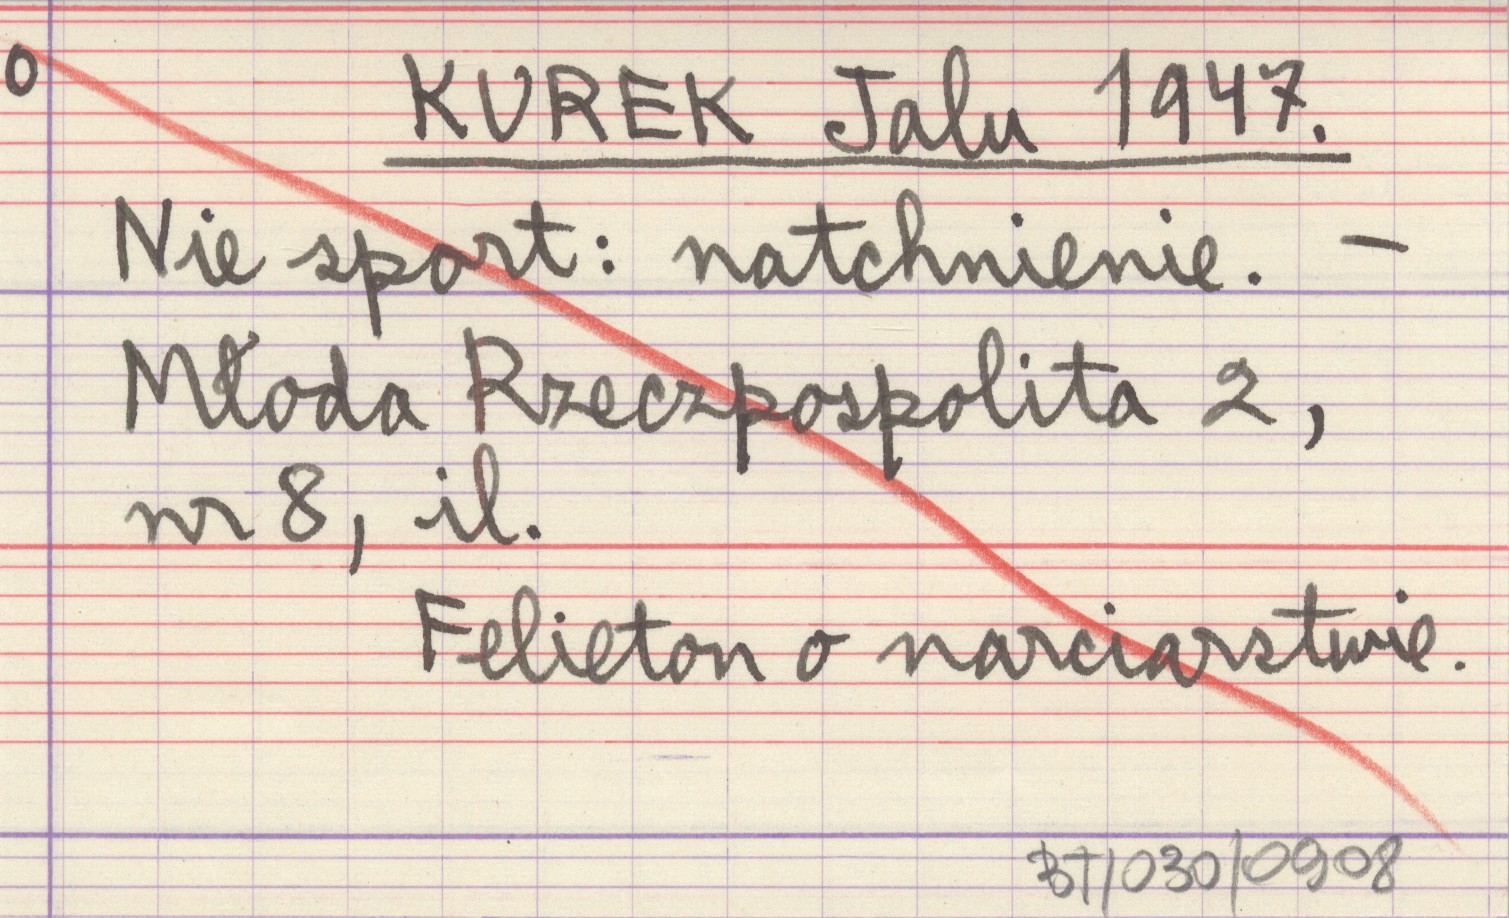 0
KUREK Jalu 1947.
Nie sport: natchnienie. –
Młoda Rzeczpospolita 2,
nr 8, il.
Felieton o narciarstwie.
BT/030/0908